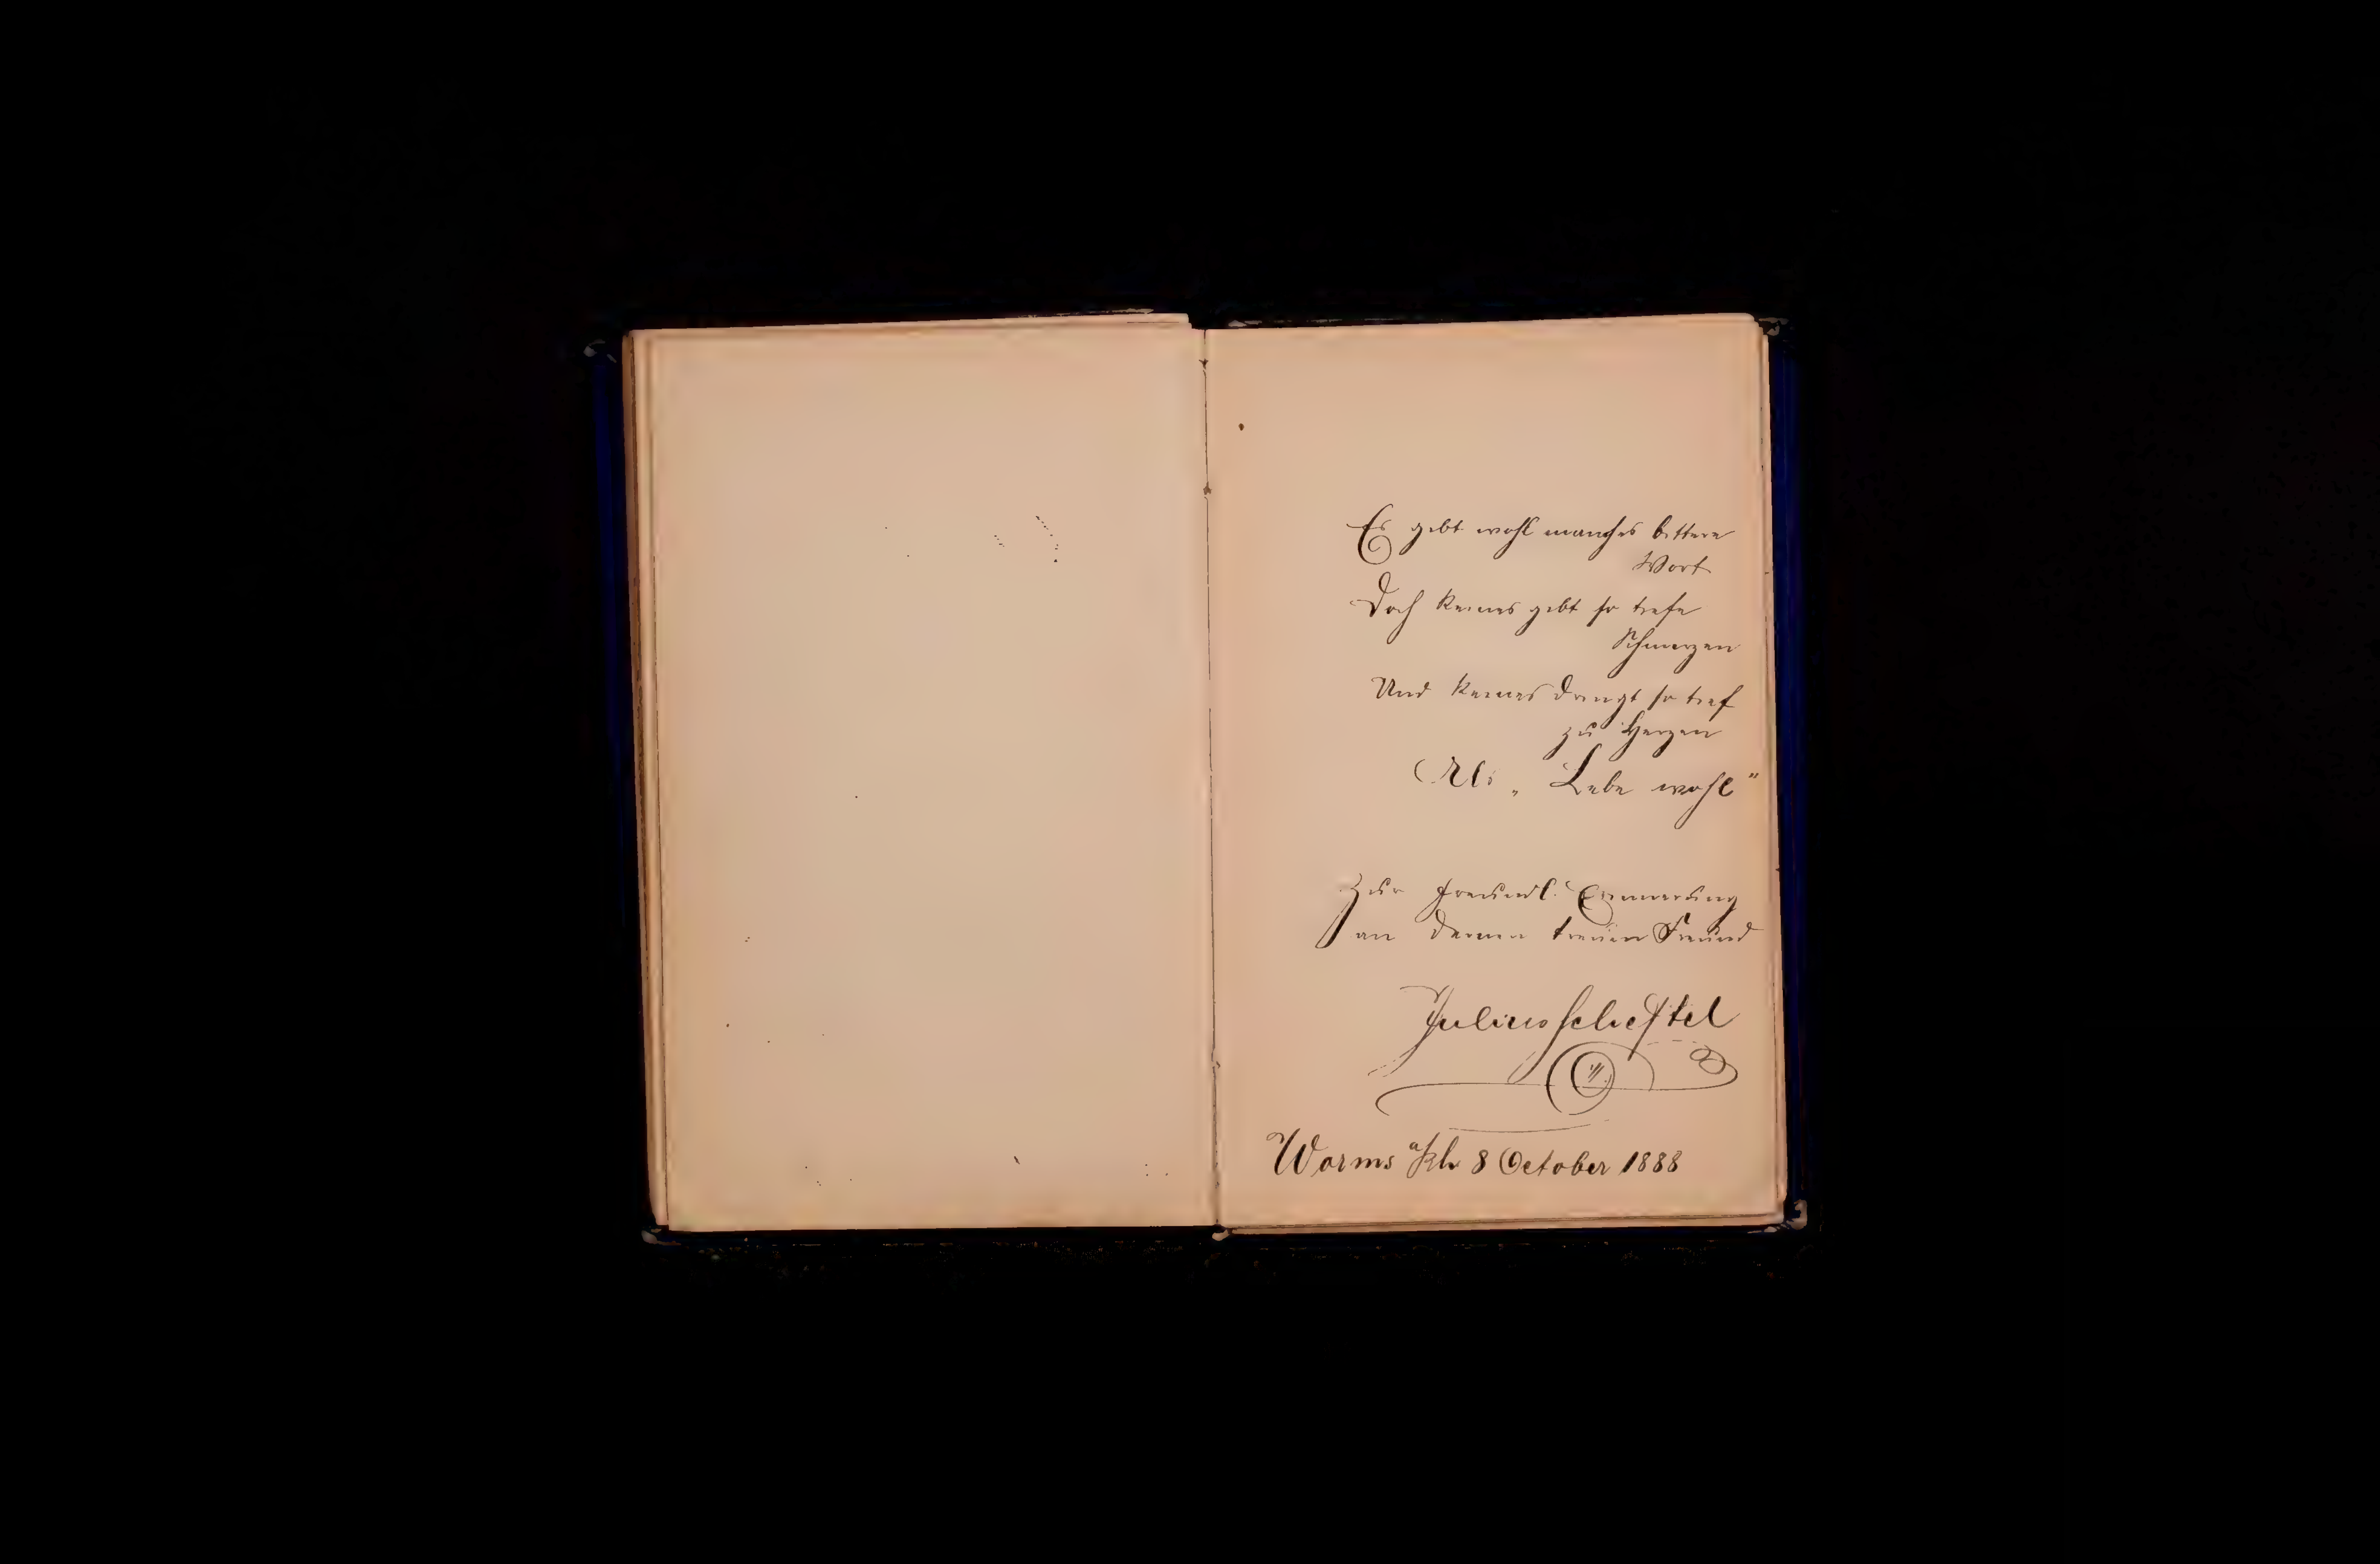 Es gibt wohl manches bittere
Wort
Doch keines gibt so tiefe
Schmerzen
Und keines dringt so tief
zu Herzen
Als „Lebe wohl“
Zur freundl. Erinnerung
an Deinen treuen Freund
Julius
Worms a/Rh 8 October 1888